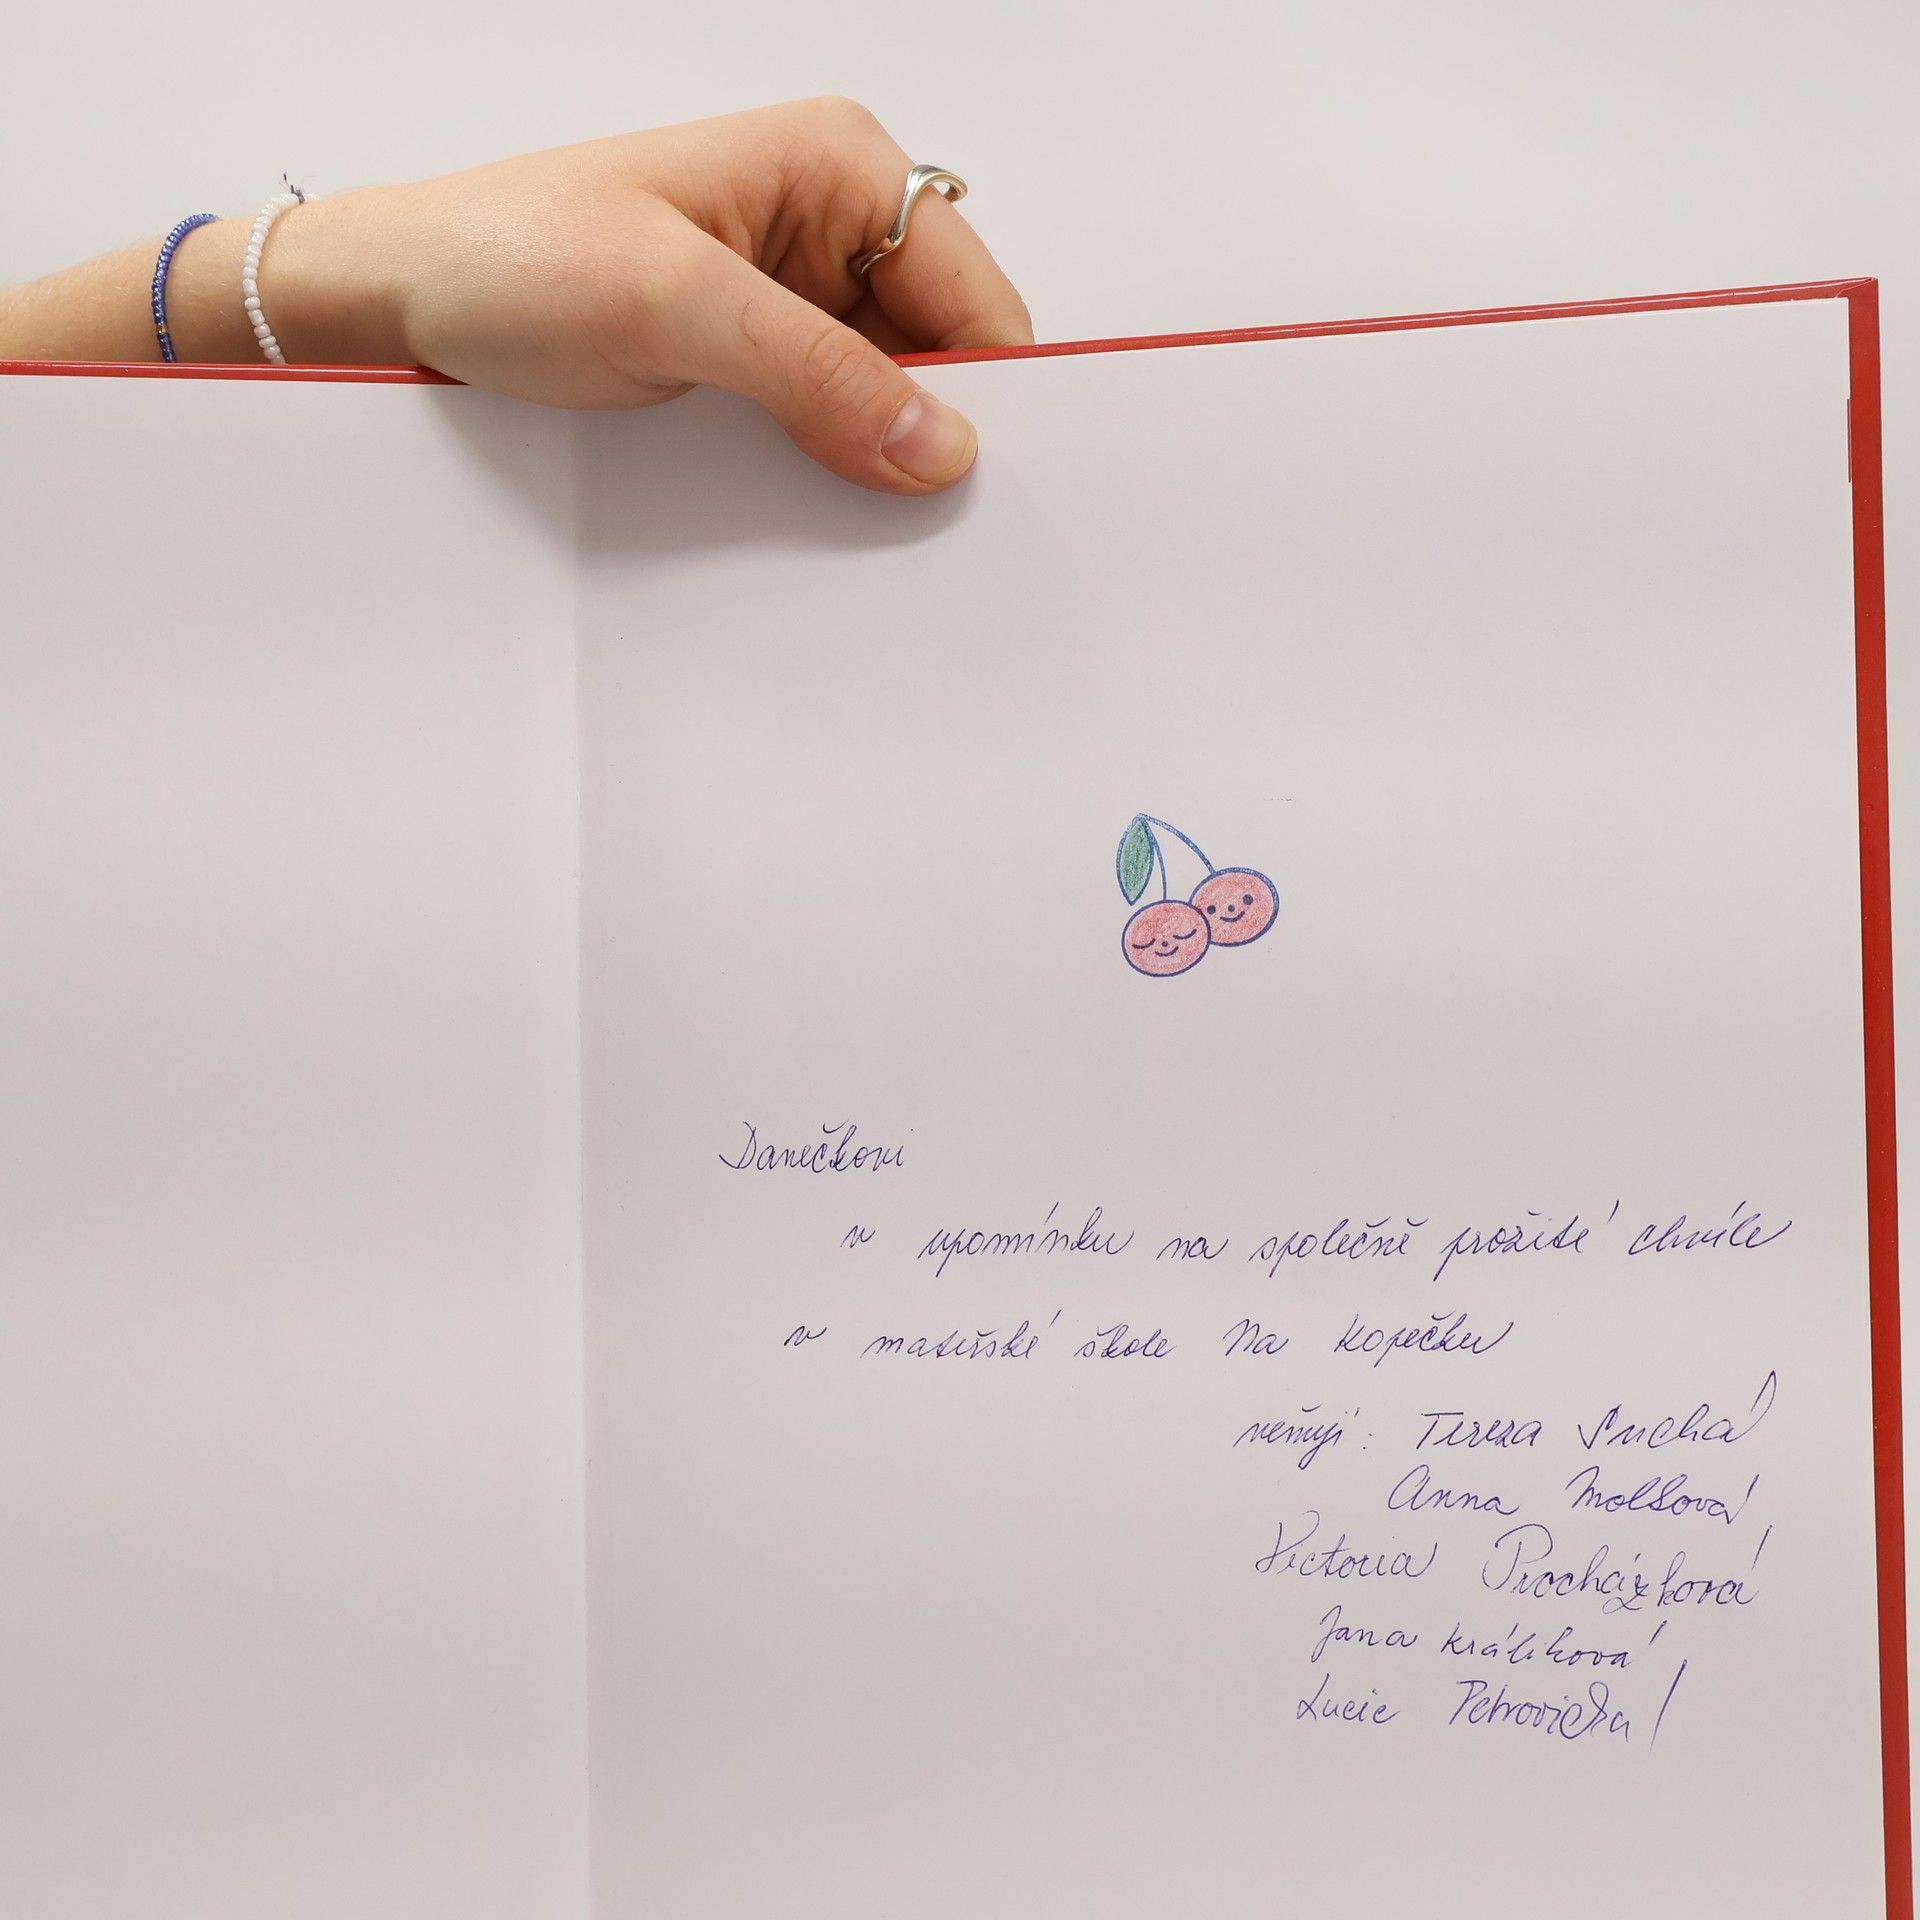 Danečkovi
v upomínku na společně prožité chvíle
v mateřské škole Na Kopečku
věnují: Tereza Suchá
Anna Molsová
Victoria Procházková
Jana Králiková
Lucie Petrovická